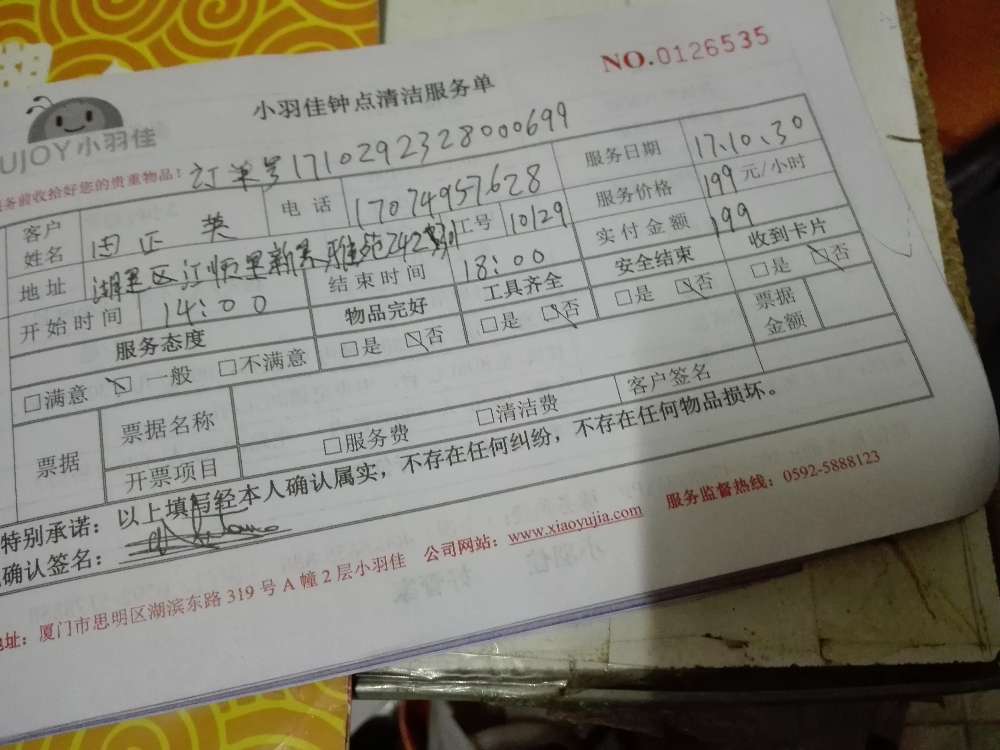 NO.0126535
小羽佳钟点清洁服务单
UJOY小羽佳
务前收拾好您的贵重物品: 订单号1710292328000699
客户姓名 田正英 电话 17074957628 服务日期 17.10.30
地址 湖里区江 里新景雅苑242 工号 10129 服务价格 199元/小时
开始时间 14:00 结束时间 18:00 实付金额 199
服务态度 物品完好 工具齐全 安全结束 收到卡片
□满意 □一般 □不满意 □是 □否 □是 □否 □是 □否 □是 □否
票据 票据名称 票据金额
开票项目 □服务费 □清洁费 客户签名
特别承诺: 以上填写经本人确认属实,不存在任何纠纷,不存在任何物品损坏。
确认签名:
地址: 厦门市思明区湖滨东路 319 号 A 幢 2 层小羽佳 公司网站: www.xiaoyujia.com 服务监督热线: 0592-5888123